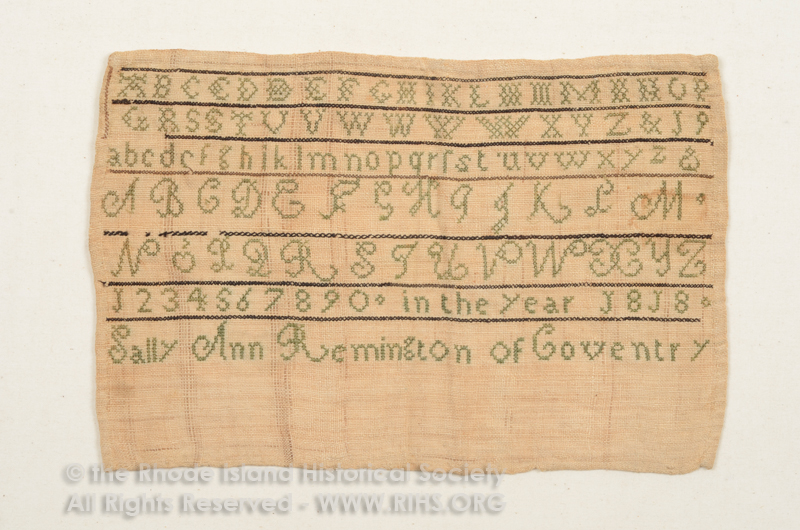 A B C C D D E F G H I K L M M M N N O P
Q R S S T U V W W W W X Y Z & J 9
a b c d e f g h l k l m n o p q r ſ s t u v w x y z &
A B C D E F G H I J K L M
N O P Q R S T U V W X Y Z
J 2 3 4 5 6 7 8 9 0 in the year J8J8
Sally Ann Remington of Coventry
© the Rhode Island Historical Society
All Rights Reserved - WWW.RIHS.ORG